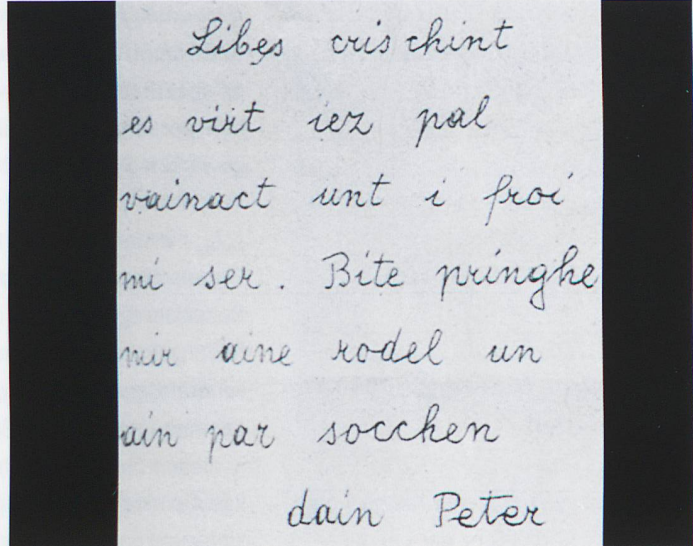 Libes crischint
es virt iez pal
vainact unt i froi
mi ser. Bite pringhe
mir aine rodel un
ain par socchen
dain Peter